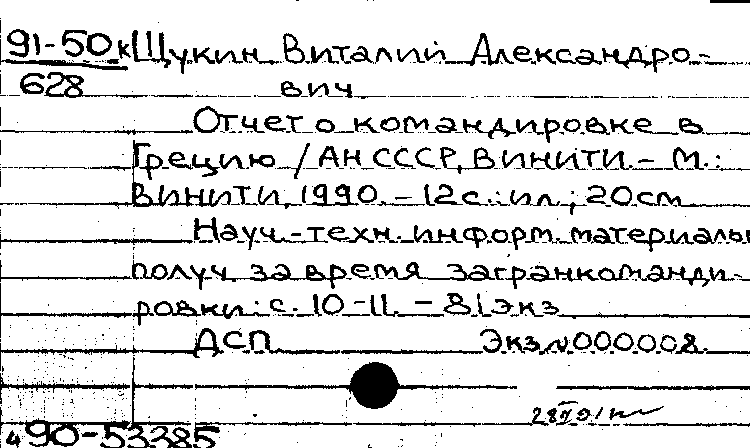 91-50к Щукин Виталий Александро-
628 вич
Отчет о командировке в
Грецию / АН СССР, ВИНИТИ. - М.:
ВИНИТИ, 1990. - 12 с.: ил.; 20 см
Науч.-техн. информ. материалы
получ. за время загранкоманди-
ровки: с. 10-11. - 81 экз
ДСП Экз № 000008.
490-53385